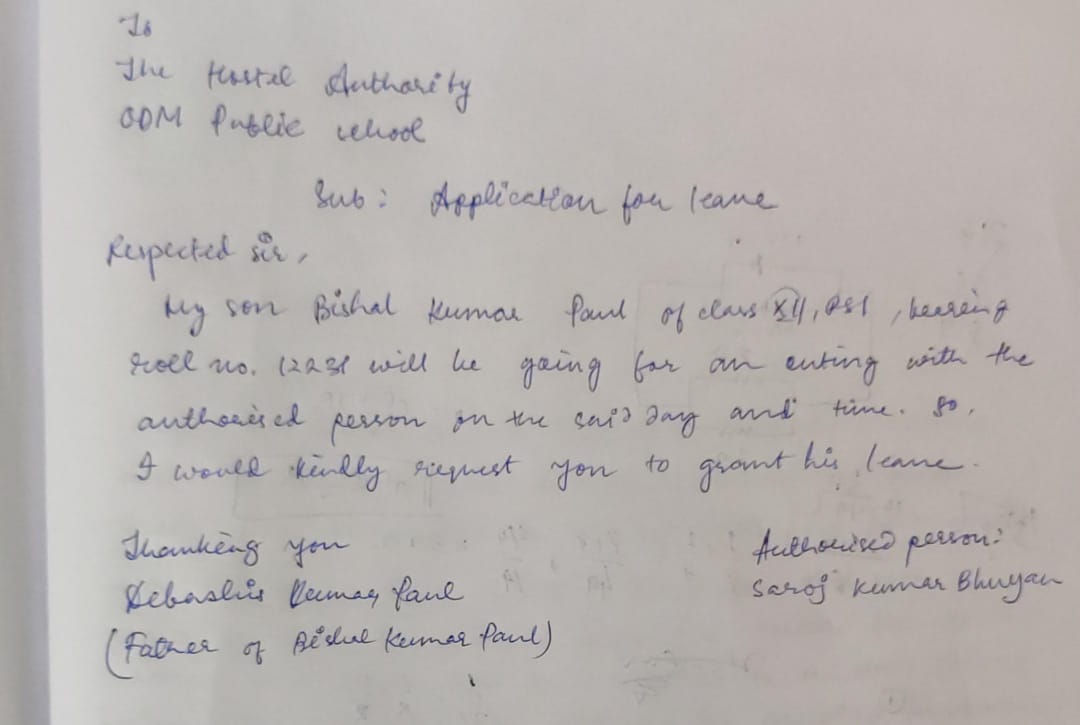 To
The Hostel Authority
ODM Public school
Sub : Application for leave
Respected sir,
My son Bishal Kumar Paul of class XII, PS1, bearing
roll no. 12231 will be going for an outing with the
authorised person on the said day and time. So,
I would kindly request you to grant his leave.
Thanking you
Debashis Kumar Paul
(Father of Bishal Kumar Paul)
Authorised person:
Saroj Kumar Bhuyan